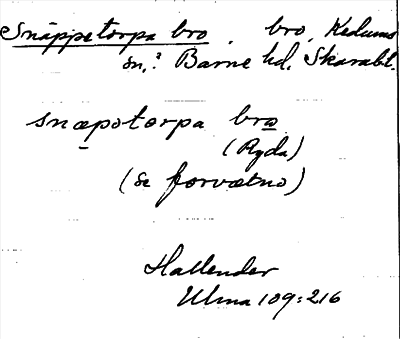 Snäppetorpa bro. bro, Kedums
sn,? Barne hd. Skarabl.
snæpotorpa bro
(Ryda)
(se forvætno)
Hallender
Ulma 109:216